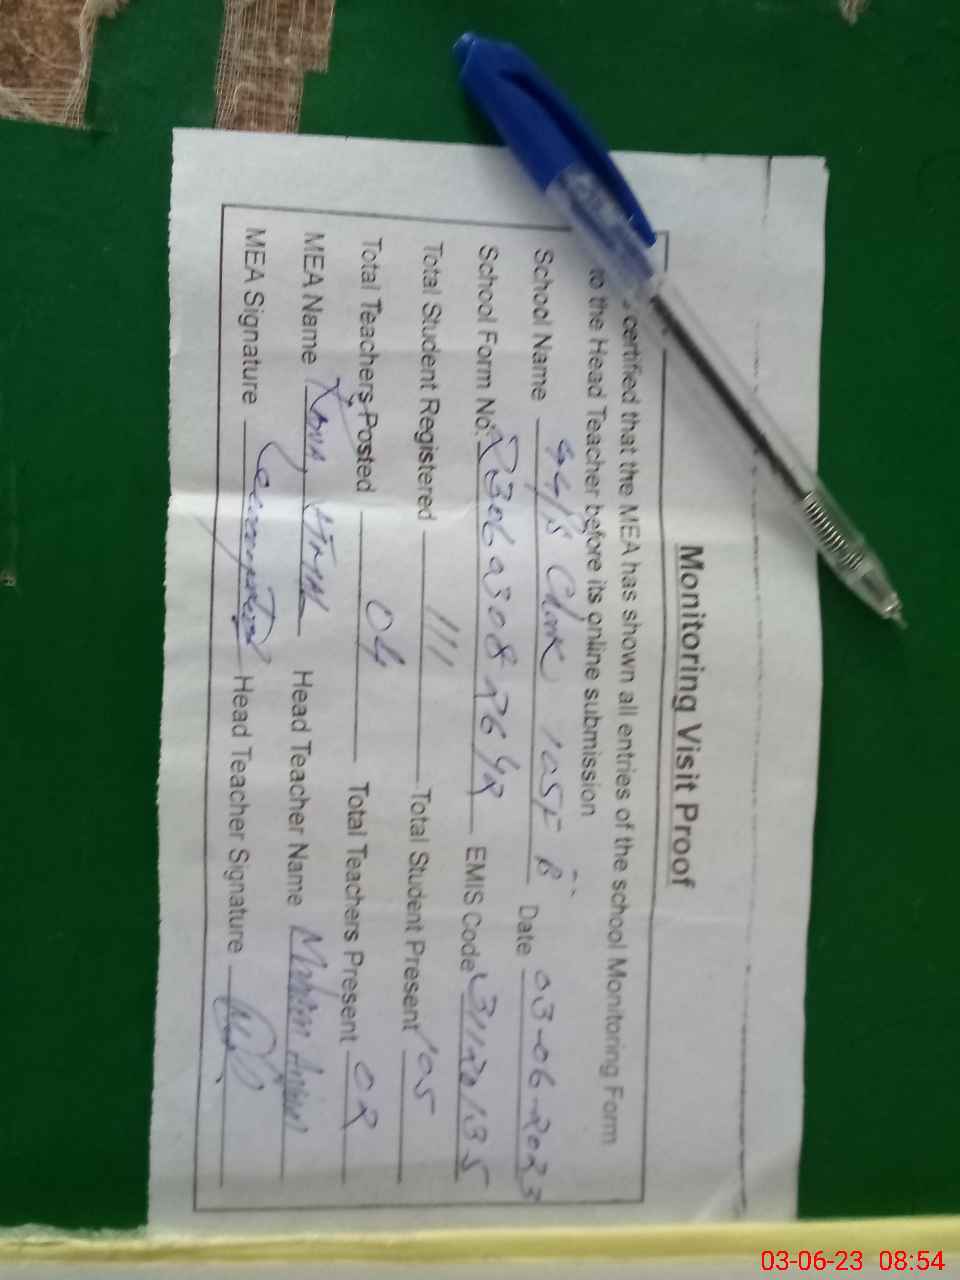 Monitoring Visit Proof
certified that the MEA has shown all entries of the school Monitoring Form
to the Head Teacher before its online submission
School Name Chak 105F B Date 03-06-2023
School Form No. EMIS Code 31120135
Total Student Registered 111 Total Student Present 105
Total Teachers Posted 04 Total Teachers Present 02
MEA Name Head Teacher Name
MEA Signature Head Teacher Signature
03-06-23 08:54